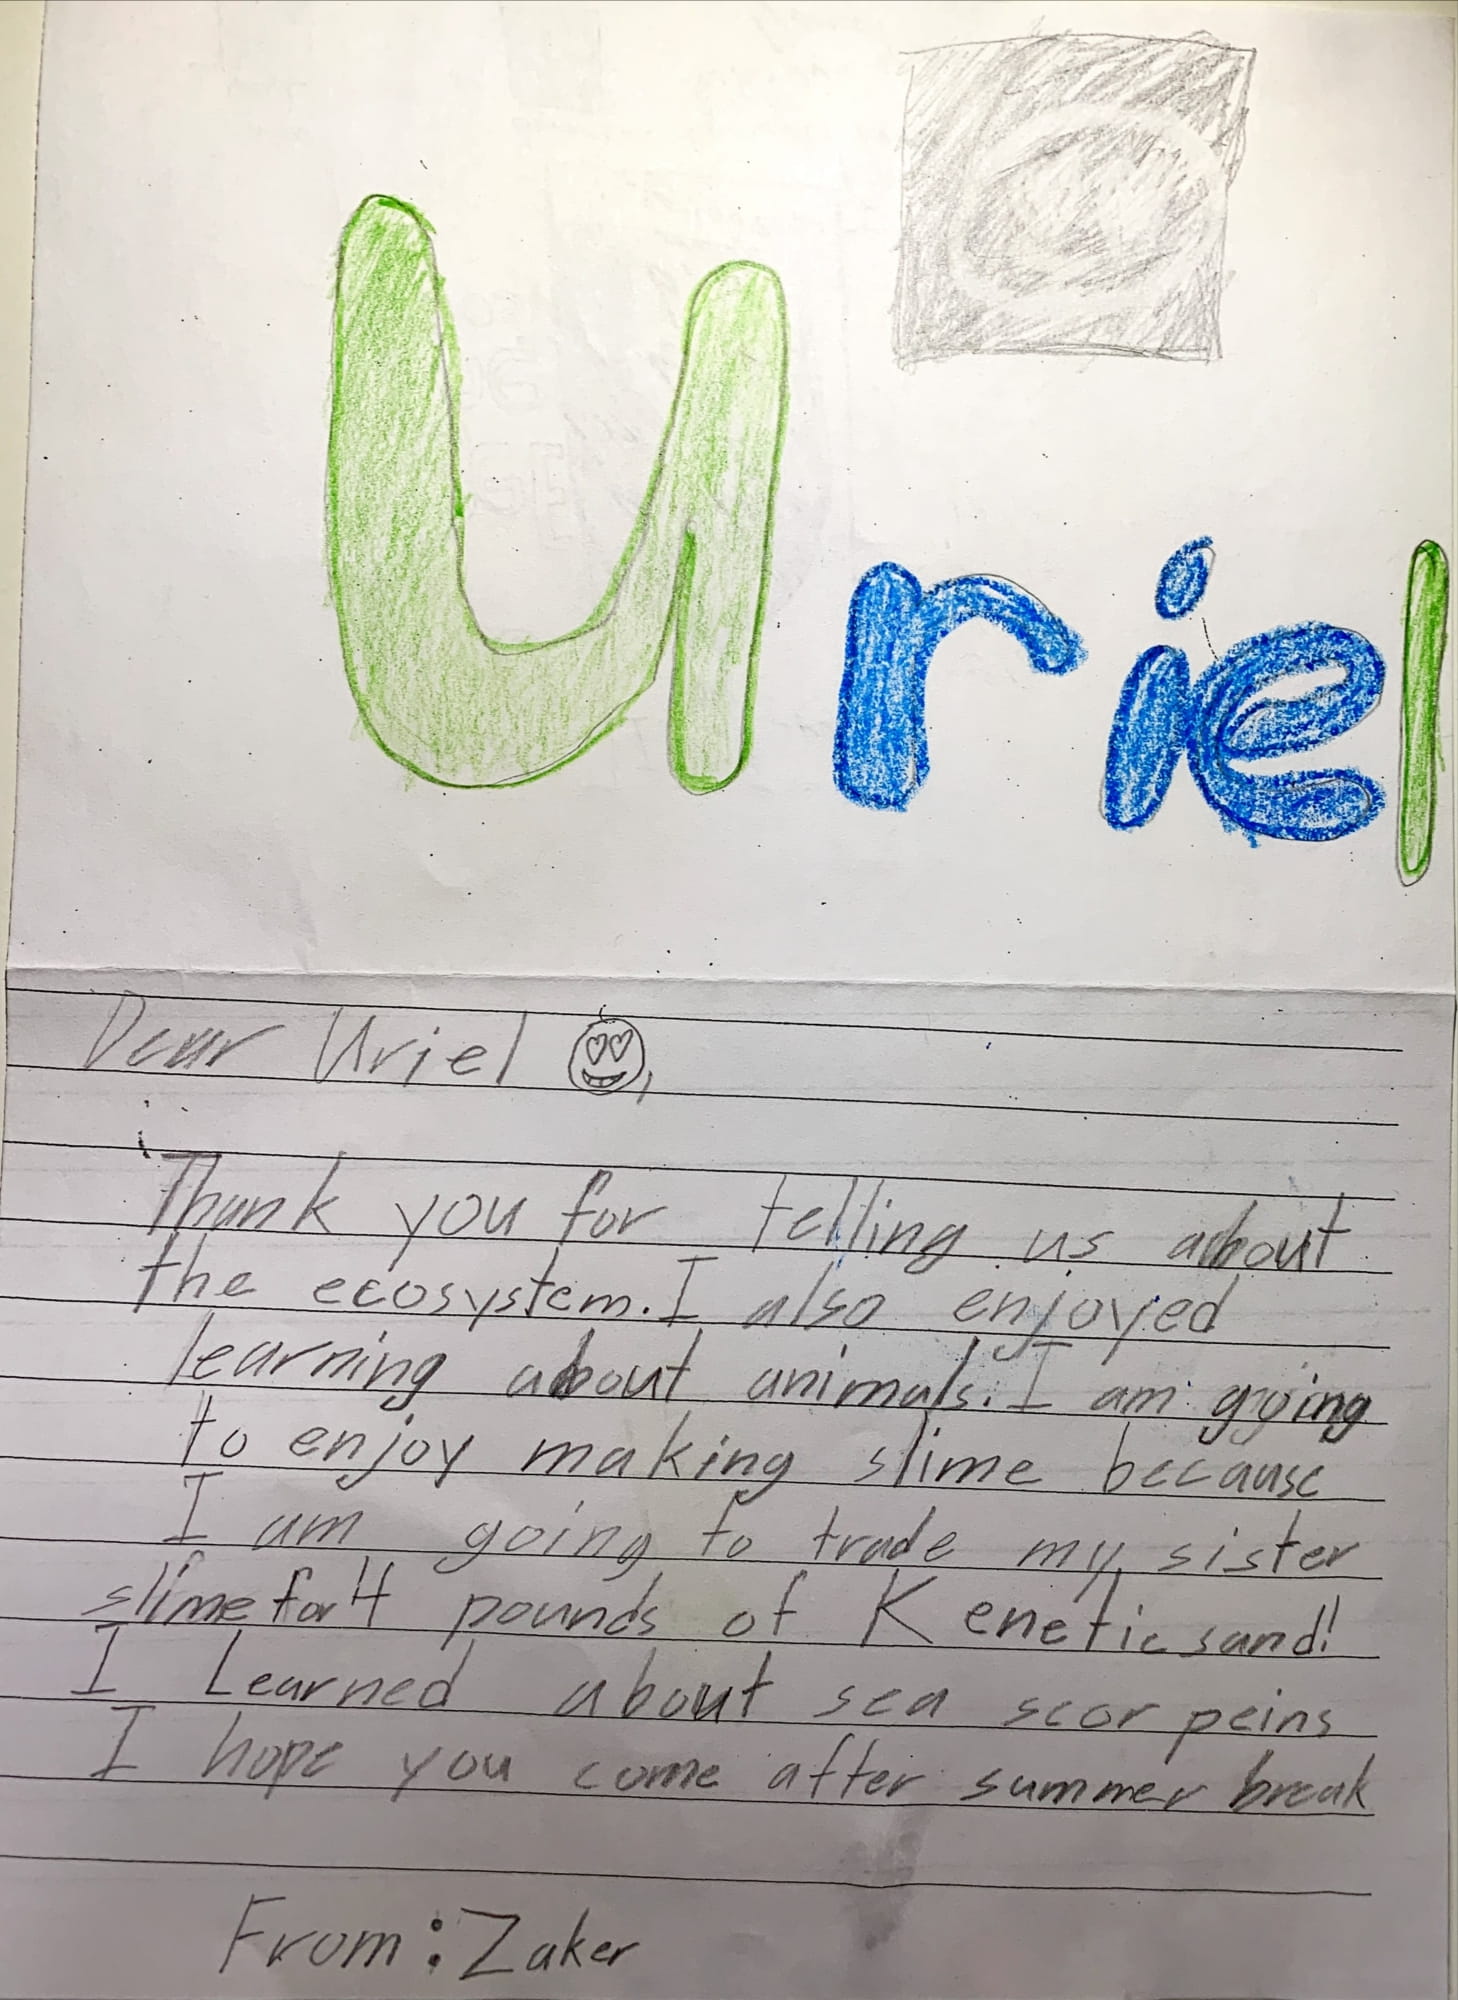 Uriel
Dear Uriel 😍,
Thank you for telling us about
the ecosystem. I also enjoyed
learning about animals. I am going
to enjoy making slime because
I am going to trade my sister
slime for 4 pounds of Kenetic sand!
I Learned about sea scorpeins
I hope you come after summer break
From: Zaker